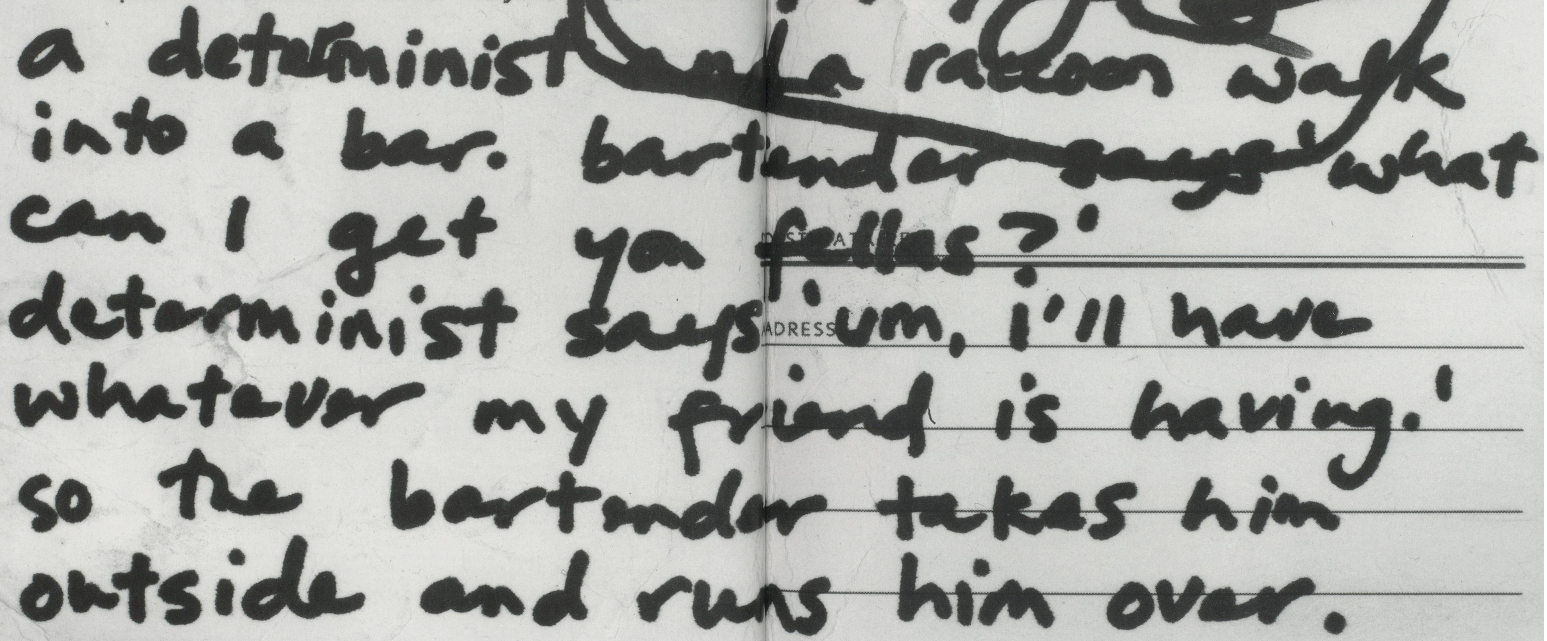 a determinist and a racoon walk
into a bar. bartender says 'what
can I get you fellas?'
determinist says 'um, i'll have
whatever my friend is having.'
so the bartender takes him
outside and runs him over.
ADRESS